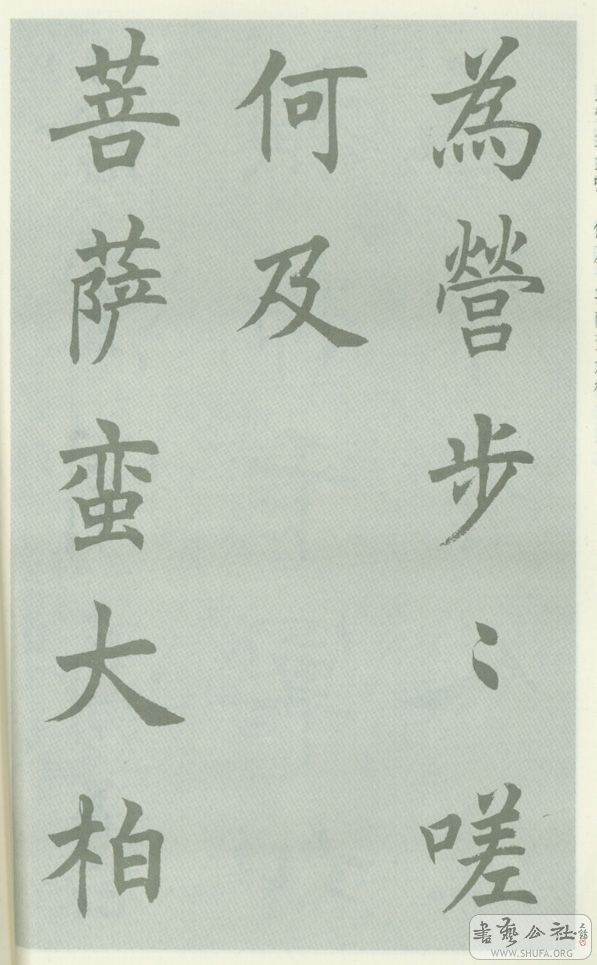 為營步〻嗟
何及
菩萨蛮大柏
書藝公社
WWW.SHUFA.ORG